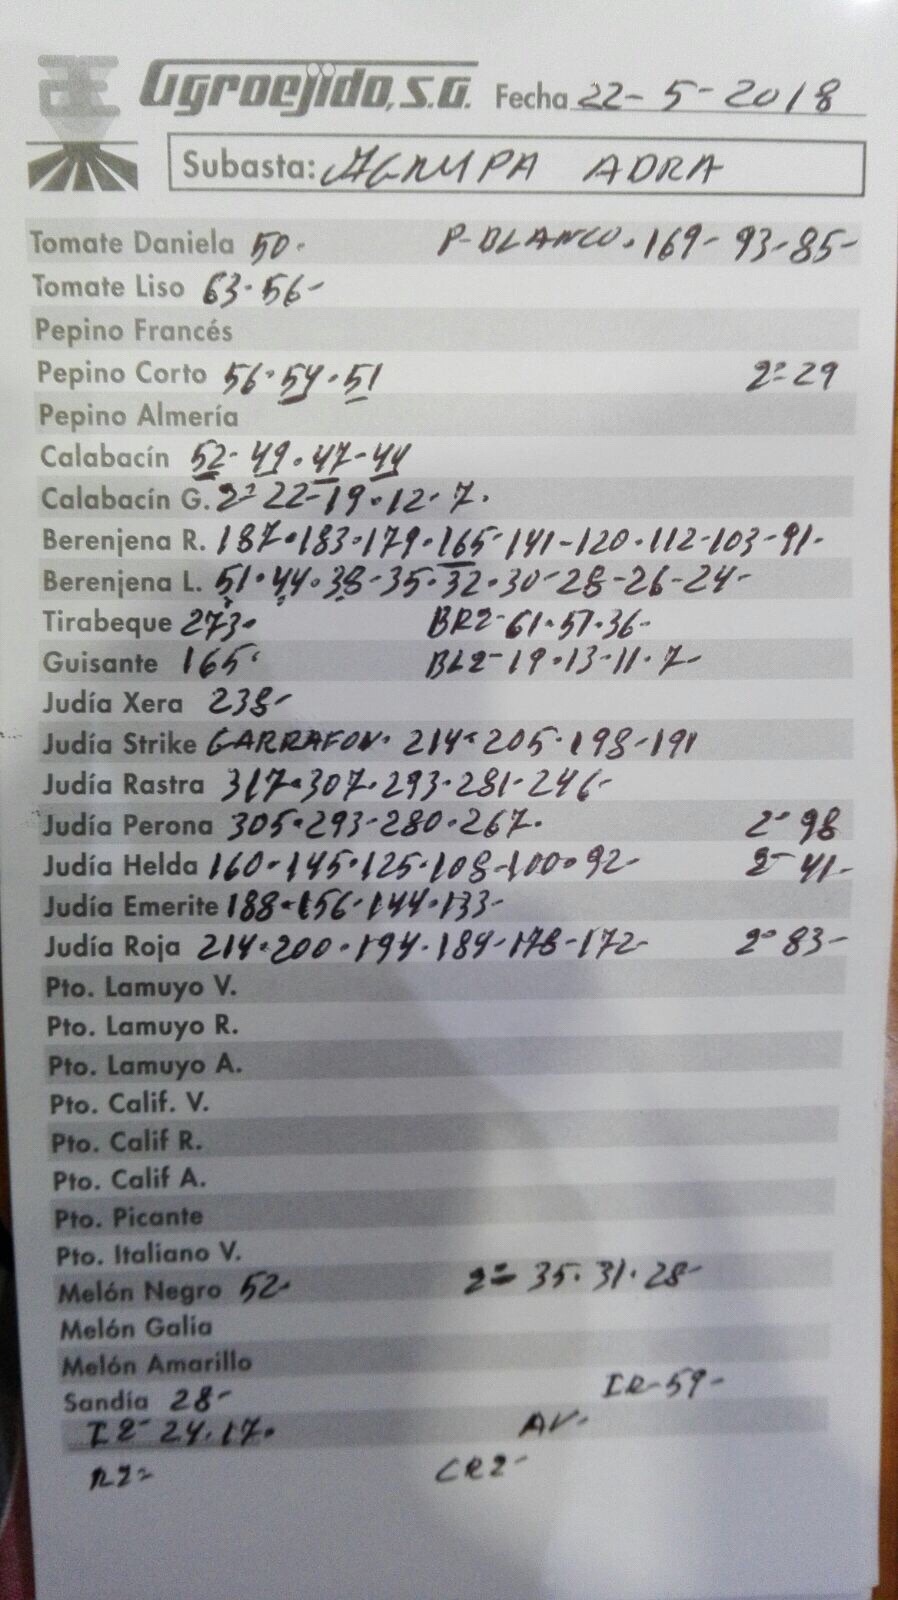 Agroejido, S.A. Fecha 22-5-2018
Subasta: AGRUPA ADRA
Tomate Daniela 50. P-BLANCO. 169-93-85-
Tomate Liso 63.56-
Pepino Francés
Pepino Corto 56.54.51 2ª 29
Pepino Almería
Calabacín 52-49.47-44
Calabacín G. 2ª 22-19.12-7.
Berenjena R. 187.183.179.165-141-120.112-103-91-
Berenjena L. 51.44.38-35.32.30-28-26-24-
Tirabeque 273. BR2-61.57.36-
Guisante 165. BL2-19.13-11.7-
Judía Xera 238-
Judía Strike GARRAFON. 214.205.198-191
Judía Rastra 317.307.293.281-246-
Judía Perona 305.293-280.267. 2ª 98
Judía Helda 160.145.125.108-100.92- 2ª 41-
Judía Emerite 188.156-144.133-
Judía Roja 214.200.194.184-178-172- 2ª 83-
Pto. Lamuyo V.
Pto. Lamuyo R.
Pto. Lamuyo A.
Pto. Calif. V.
Pto. Calif R.
Pto. Calif A.
Pto. Picante
Pto. Italiano V.
Melón Negro 52. 2ª 35.31.28-
Melón Galia
Melón Amarillo
Sandía 28- IR-59-
I2- 24.17. AV-
R2- CR2-